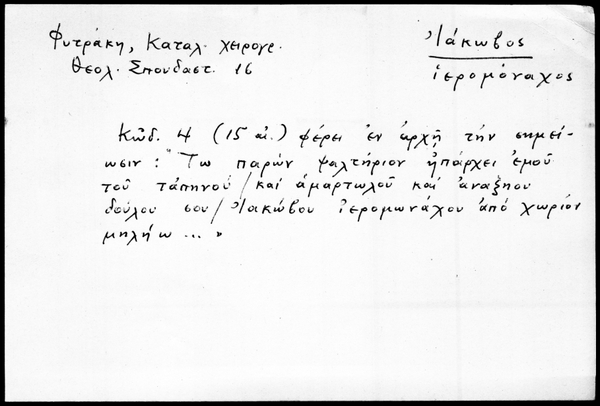 Φυτράκη, Καταλ. χειρογρ.
Θεολ. Σπουδαστ. 16
Ἰάκωβος
ἱερομόναχος
Κῶδ. 4 (15 αἰ.) φέρει ἐν ἀρχῇ τὴν σημεί-
ωσιν: "Τω παρών ψαλτήριον ἠπάρχει ἐμοῦ
τοῦ τάπηνοῦ / καί ἁμαρτωλοῦ καί ἀναξηου
δούλου σου / Ἰακώβου ἱερομωνάχου ἀπό χωρίον
μηλήω ... »